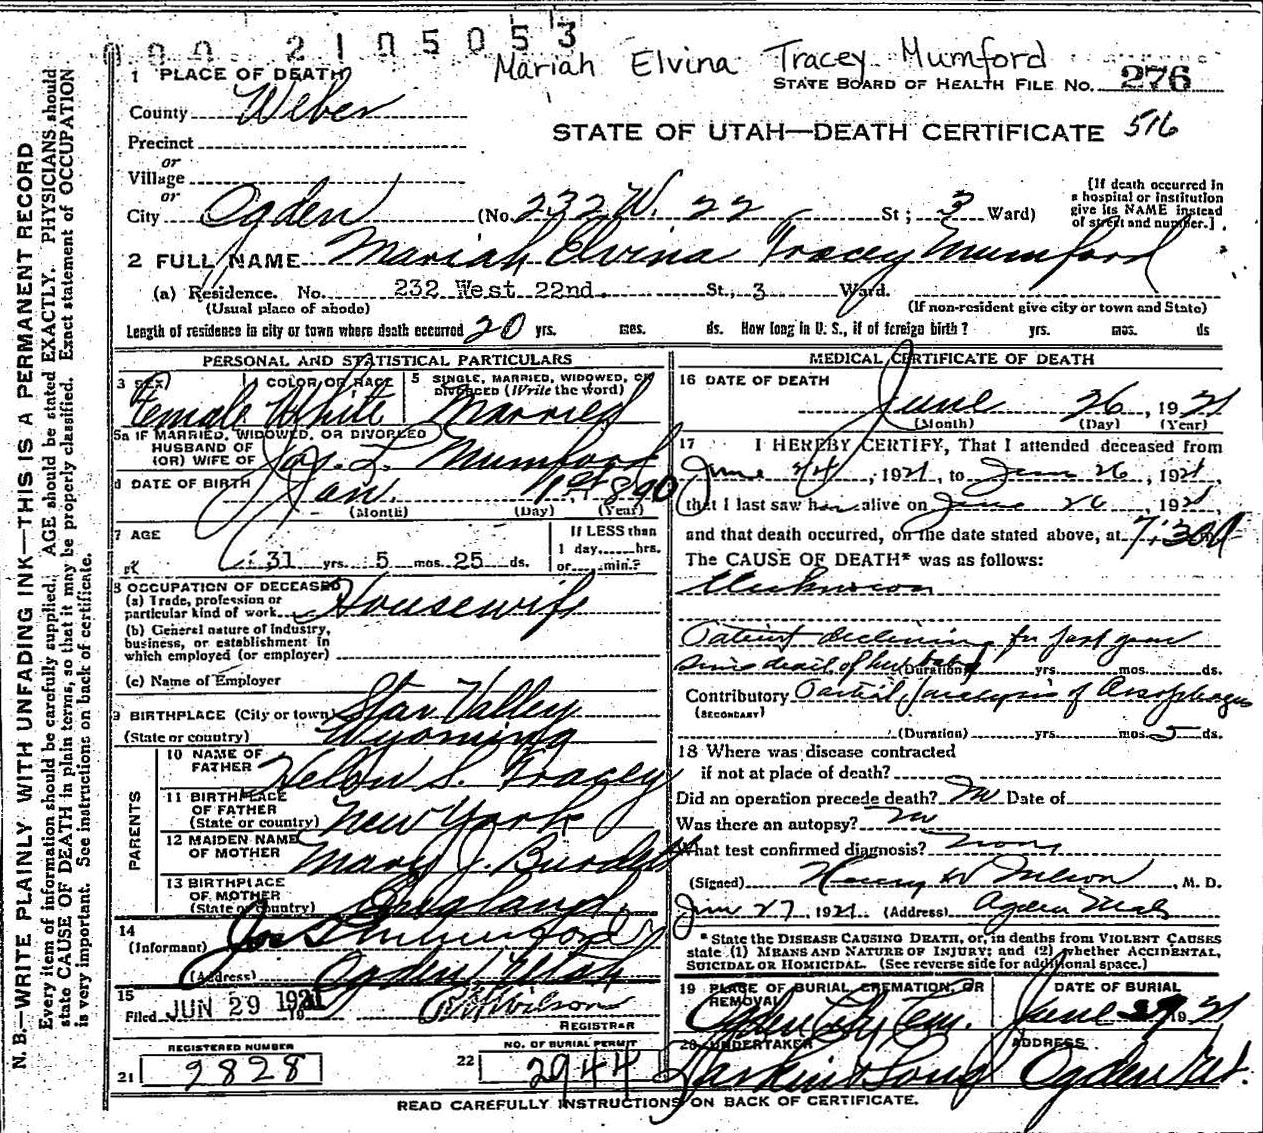 000 2105053
Mariah Elvina Tracey Mumford
1 PLACE OF DEATH
STATE BOARD OF HEALTH FILE NO. 276
County Weber
STATE OF UTAH—DEATH CERTIFICATE 516
Precinct
or
Village
or
City Ogden (No. 232 W. 22 St; 3 Ward)
[If death occurred in
a hospital or institution
give its NAME instead
of street and number.]
2 FULL NAME Mariah Elvina Tracey Mumford
(a) Residence. No. 232 West 22nd. St., 3 Ward.
(Usual place of abode) (If non-resident give city or town and State)
Length of residence in city or town where death occurred 20 yrs. mos. ds. How long in U. S., if of foreign birth? yrs. mos. ds
PERSONAL AND STATISTICAL PARTICULARS
3 SEX
Female
COLOR OR RACE
White
5 SINGLE, MARRIED, WIDOWED, OR
DIVORCED (Write the word)
Married
5a IF MARRIED, WIDOWED, OR DIVORCED
HUSBAND OF
(OR) WIFE OF Jos. L. Mumford
DATE OF BIRTH Jan. 1st 1890
(Month) (Day) (Year)
7 AGE
31 yrs. 5 mos. 25 ds.
If LESS than
1 day,......hrs.
or......min.?
8 OCCUPATION OF DECEASED
(a) Trade, profession or
particular kind of work Housewife
(b) General nature of industry,
business, or establishment in
which employed (or employer)
(c) Name of Employer
9 BIRTHPLACE (City or town) Star Valley
(State or country) Wyoming
PARENTS
10 NAME OF
FATHER Helon S. Tracey
11 BIRTHPLACE
OF FATHER
(State or country) New York
12 MAIDEN NAME
OF MOTHER Mary J. Burdett
13 BIRTHPLACE
OF MOTHER
(State or country) England
14
(Informant) Jos L Mumford
(Address) Ogden, Utah
15
Filed JUN 29 1921
REGISTRAR
REGISTERED NUMBER
21 2828
NO. OF BURIAL PERMIT
22 2944
MEDICAL CERTIFICATE OF DEATH
16 DATE OF DEATH
June 26, 1921
(Month) (Day) (Year)
17 I HEREBY CERTIFY, That I attended deceased from
June 24, 1921, to June 26, 1921,
that I last saw her alive on June 26, 1921
and that death occurred, on the date stated above, at 7:30
The CAUSE OF DEATH* was as follows:
Unknown
Patient declining for past year
since death of her baby (Duration) yrs. mos. ds.
Contributory Partial Paralysis of Oesophagus
(SECONDARY)
(Duration) yrs. mos. 5 ds.
18 Where was disease contracted
if not at place of death?
Did an operation precede death? No Date of
Was there an autopsy? No
What test confirmed diagnosis? None
(Signed) Henry W Nelson, M. D.
Jun 27, 1921 (Address) Ogden Utah
* State the DISEASE CAUSING DEATH, or, in deaths from VIOLENT CAUSES
state (1) MEANS AND NATURE OF INJURY; and (2) whether ACCIDENTAL,
SUICIDAL OR HOMICIDAL. (See reverse side for additional space.)
19 PLACE OF BURIAL, CREMATION, OR
REMOVAL
Ogden City Cem.
DATE OF BURIAL
June 29 1921
20 UNDERTAKER
Larkin & Sons
ADDRESS
Ogden Ut.
READ CAREFULLY INSTRUCTIONS ON BACK OF CERTIFICATE.
N. B.—WRITE PLAINLY WITH UNFADING INK—THIS IS A PERMANENT RECORD
Every item of information should be carefully supplied. AGE should be stated EXACTLY. PHYSICIANS should
state CAUSE OF DEATH in plain terms, so that it may be properly classified. Exact statement of OCCUPATION
is very important. See instructions on back of certificate.